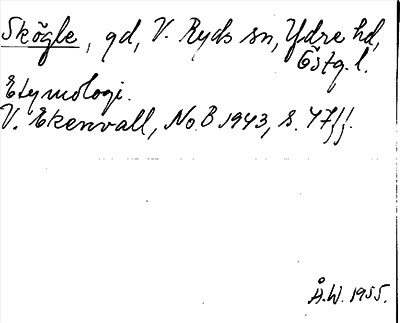 Skögle, gd, V. Ryds sn, Ydre hd,
Östg.l.
Etymologi.
V. Ekenvall, No.B 1943, s. 47ff.
Å.W. 1955.